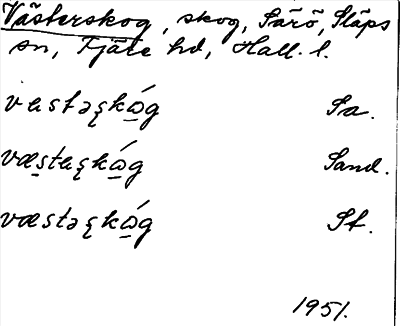 Västerskog, skog, Särö, Släps
sn, Fjäre hd, Hall. l.
vastəʂkώ̲g Sa.
væs̲taʂkώ̲g Sand.
væstəʂkώ̲g St.
1951.